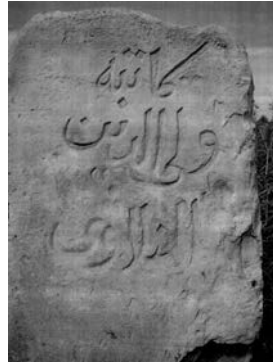 كاتبه
ولى الدين